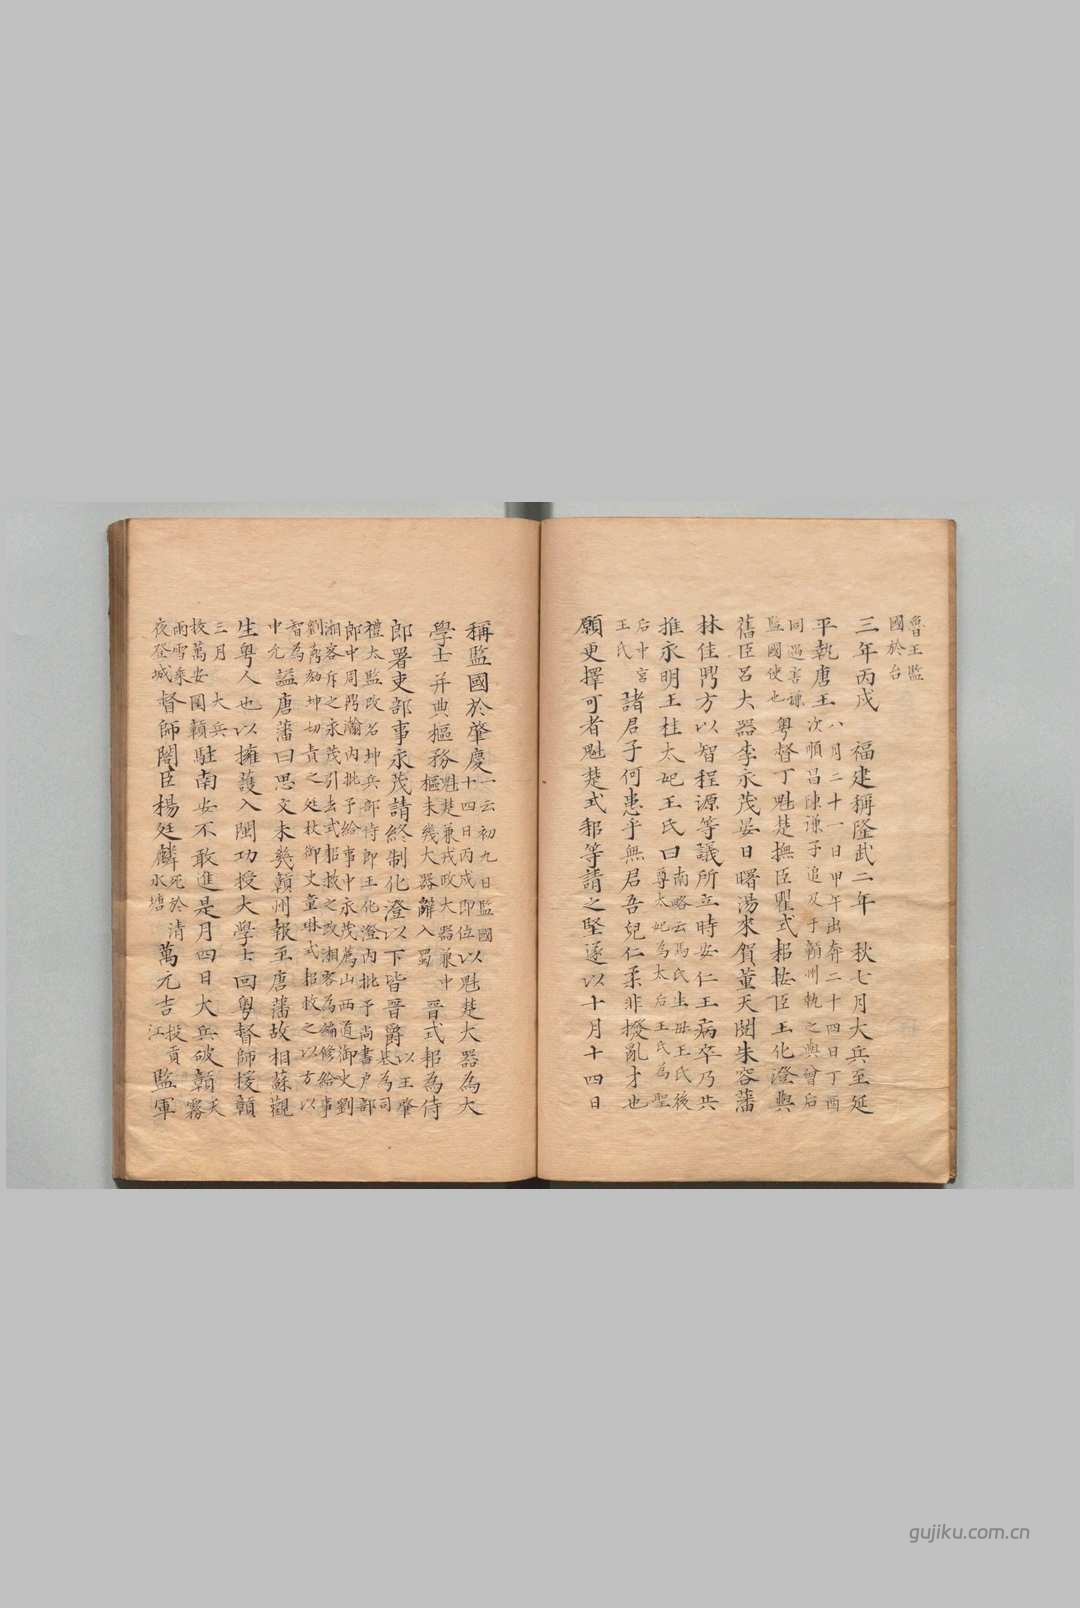 魯王監
國於台
三年丙戌 福建稱隆武二年 秋七月大兵至延
平執唐王
八月二十一日甲午出奔二十四日丁酉
次順昌陳謙子追及于贛州執之與曾后
同遇害謙
監國使也
粵督丁魁楚撫臣瞿式耜樁臣王化澄與
舊臣呂大器李永茂晏日曙湯來賀董天閱朱容藩
林佳鼎方以智程源等議所立時安仁王病卒乃共
推永明王桂太妃王氏曰
南略云馬氏生母王氏後
尊太妃為太后王氏為聖
后中宮
王氏
諸君子何患乎無君吾兒仁柔非撥亂才也
願更擇可者魁楚式耜等請之堅遂以十月十四日
稱監國於肇慶
一云初九日監國
十四日丙戌即位
以魁楚大器為大
學士并典樞務
魁楚兼戎政大器兼中
樞未幾大器辭入蜀
晉式耜為侍
郎署吏部事永茂請終制化澄以下皆晉爵
以王肇
基為司
禮太監改名坤兵部侍郎王化澄內批予尚書戶部
郎中周鼎瀚內批予給事中永茂薦山西道御史劉
湘客斥之永茂引去式耜救之改湘客為編修給事
劉鼒劾坤切責之處杖御史童琳式耜救之以方以
智為
中允
謚唐藩曰思文未幾贛州報至唐藩故相蘇觀
生粵人也以擁護入閩功授大學士回粵督師援贛
三月大兵
拔萬安圍贛
駐南安不敢進是月四日大兵破贛
天霧
雨雪乘
夜登城
督師閣臣楊廷麟
死於清
水塘
萬元吉
投貢
江
監軍
gujiku.com.cn